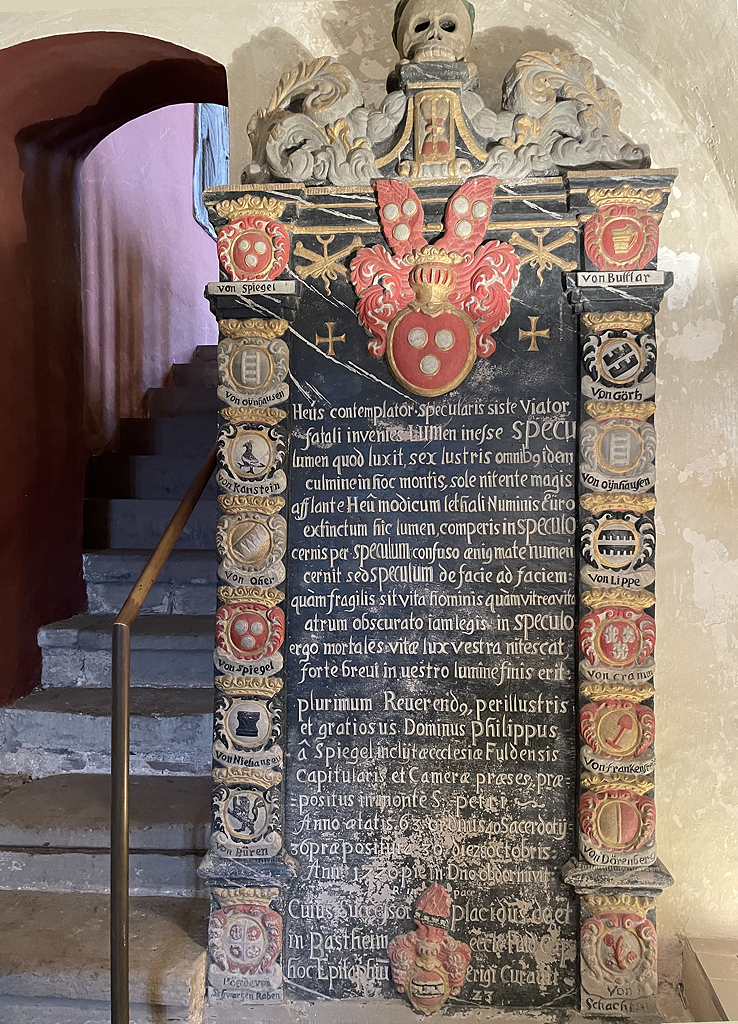 von Spiegel
von Oÿnhausen
von Kanstein
von Oher
von Spiegel
von Niehausen
von Büren
Schwartzen Raben
Heûs contemplator specularis siste Viator,
fatali invenies LUMen inesse SPECU
lumen quod luxit, sex lustris omnibq idem
culmine in hoc montis, sole nitente magis
afflante Heû modicum lethali Numinis Eüro
extinctum hic lumen, comperis in SPECULO
cernis per SPECULUM confuso ænigmate numen
cernit sed SPECULUM de facie ad faciem:
quàm fragilis sit vita hominis quàm vitrea vita
atrum obscurato iam legis in SPECULO
ergo mortales vitæ lux vestra nitescat,
forte breui in uestro lumine finis erit.
plurimum Reuerendq, perillustris
et gratiosus Dominus Philippus,
â Spiegel inclytæ ecclesiæ Fuldensis
Capitularis et Cameræ præses, præ=
=positus in monte S: petri
Anno ætatis 63 ordinis 40 Sacerdotÿ
36 præpositura 30, die 28 octobris
Anno 1720 pie in Dno obdormivit
Cuius Successor Placidus de et
in Bastheim eccle Fuld Cap
hoc Epitaphiu erigi Curavit
23
von Bufflar
von Görtz
von Oÿnhausen
von Lippe
von Cramm
von Frankenste
von Dörenberg
von
Schachten